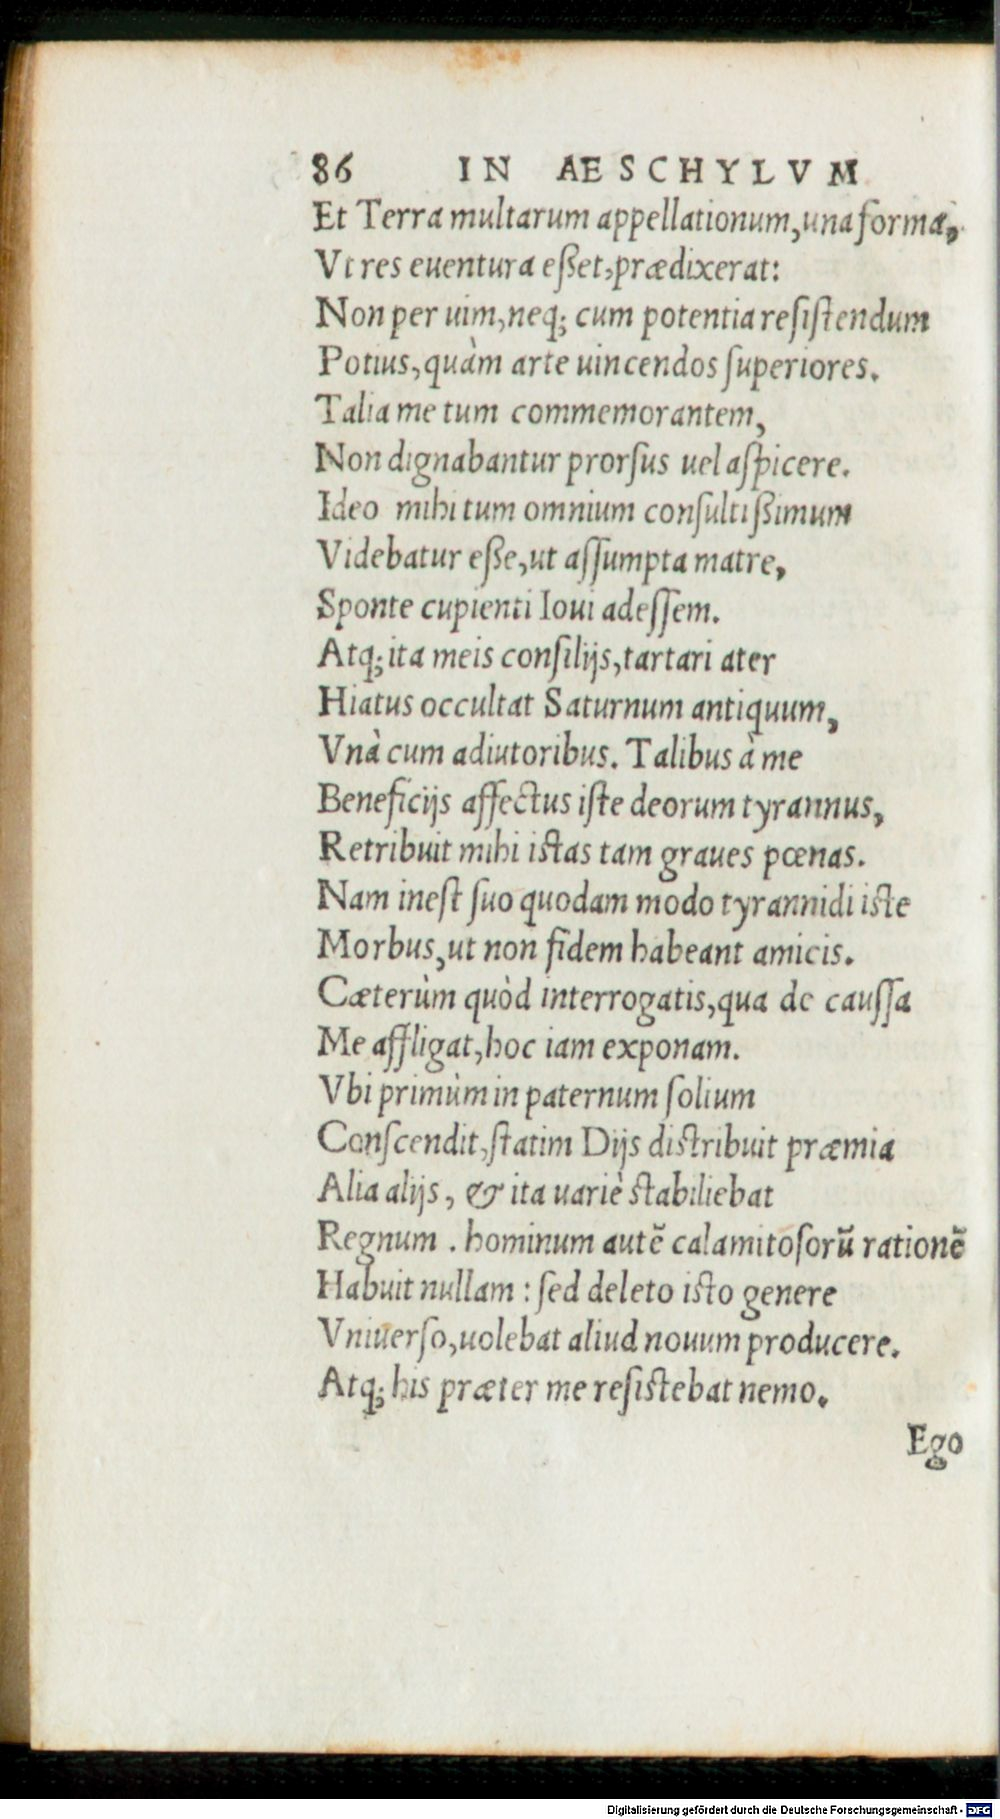 86 IN AESCHYLVM
Et Terra multarum appellationum, una forma,
Vt res euentura eßet, prædixerat:
Non per uim, neq; cum potentia resistendum
Potius, quàm arte uincendos superiores.
Talia me tum commemorantem,
Non dignabantur prorsus uel aspicere.
Ideo mihi tum omnium consultißimum
Videbatur eße, ut assumpta matre,
Sponte cupienti Ioui adessem.
Atq; ita meis consilijs, tartari ater
Hiatus occultat Saturnum antiquum,
Vnà cum adiutoribus. Talibus à me
Beneficijs affectus iste deorum tyrannus,
Retribuit mihi istas tam graues pœnas.
Nam inest suo quodam modo tyrannidi iste
Morbus, ut non fidem habeant amicis.
Cæterùm quòd interrogatis, qua de caussa
Me affligat, hoc iam exponam.
Vbi primùm in paternum solium
Conscendit, statim Dijs distribuit præmia
Alia alijs, & ita uariè stabiliebat
Regnum. hominum autẽ calamitosorũ rationẽ
Habuit nullam: sed deleto isto genere
Vniuerso, uolebat aliud nouum producere.
Atq; his præter me resistebat nemo.
Ego
Digitalisierung gefördert durch die Deutsche Forschungsgemeinschaft - DFG